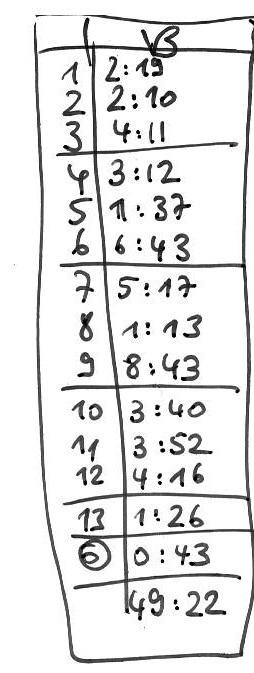 VB
1 2:19
2 2:10
3 4:11
4 3:12
5 1:37
6 6:43
7 5:17
8 1:13
9 8:43
10 3:40
11 3:52
12 4:16
13 1:26
6 0:43
49:22